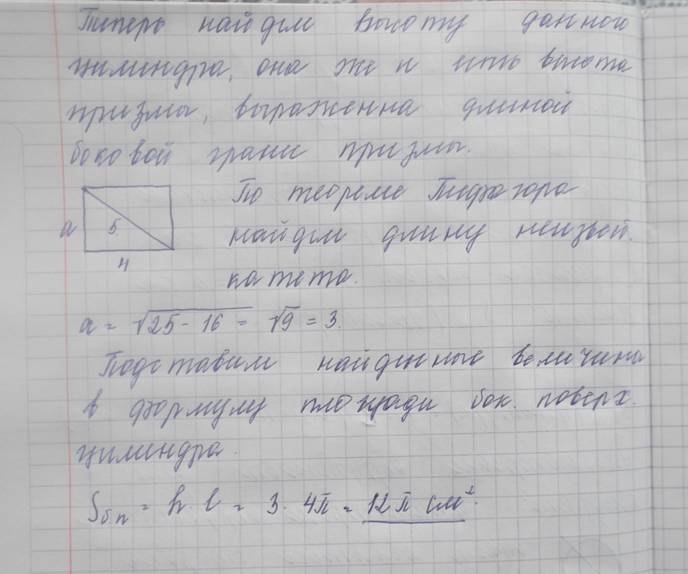 Теперь найдем высоту данного
цилиндра, она же и есть высота
призмы, выраженна длиной
боковой грани призмы.
По теореме Пифагора
a 5 найдем длину неизвей.
4 катета.
a = √25 - 16 = √9 = 3.
Подставим найденные величины
в формулу площади бок. поверх.
цилиндра.
Sб.п = h · l = 3 · 4π = 12π см².